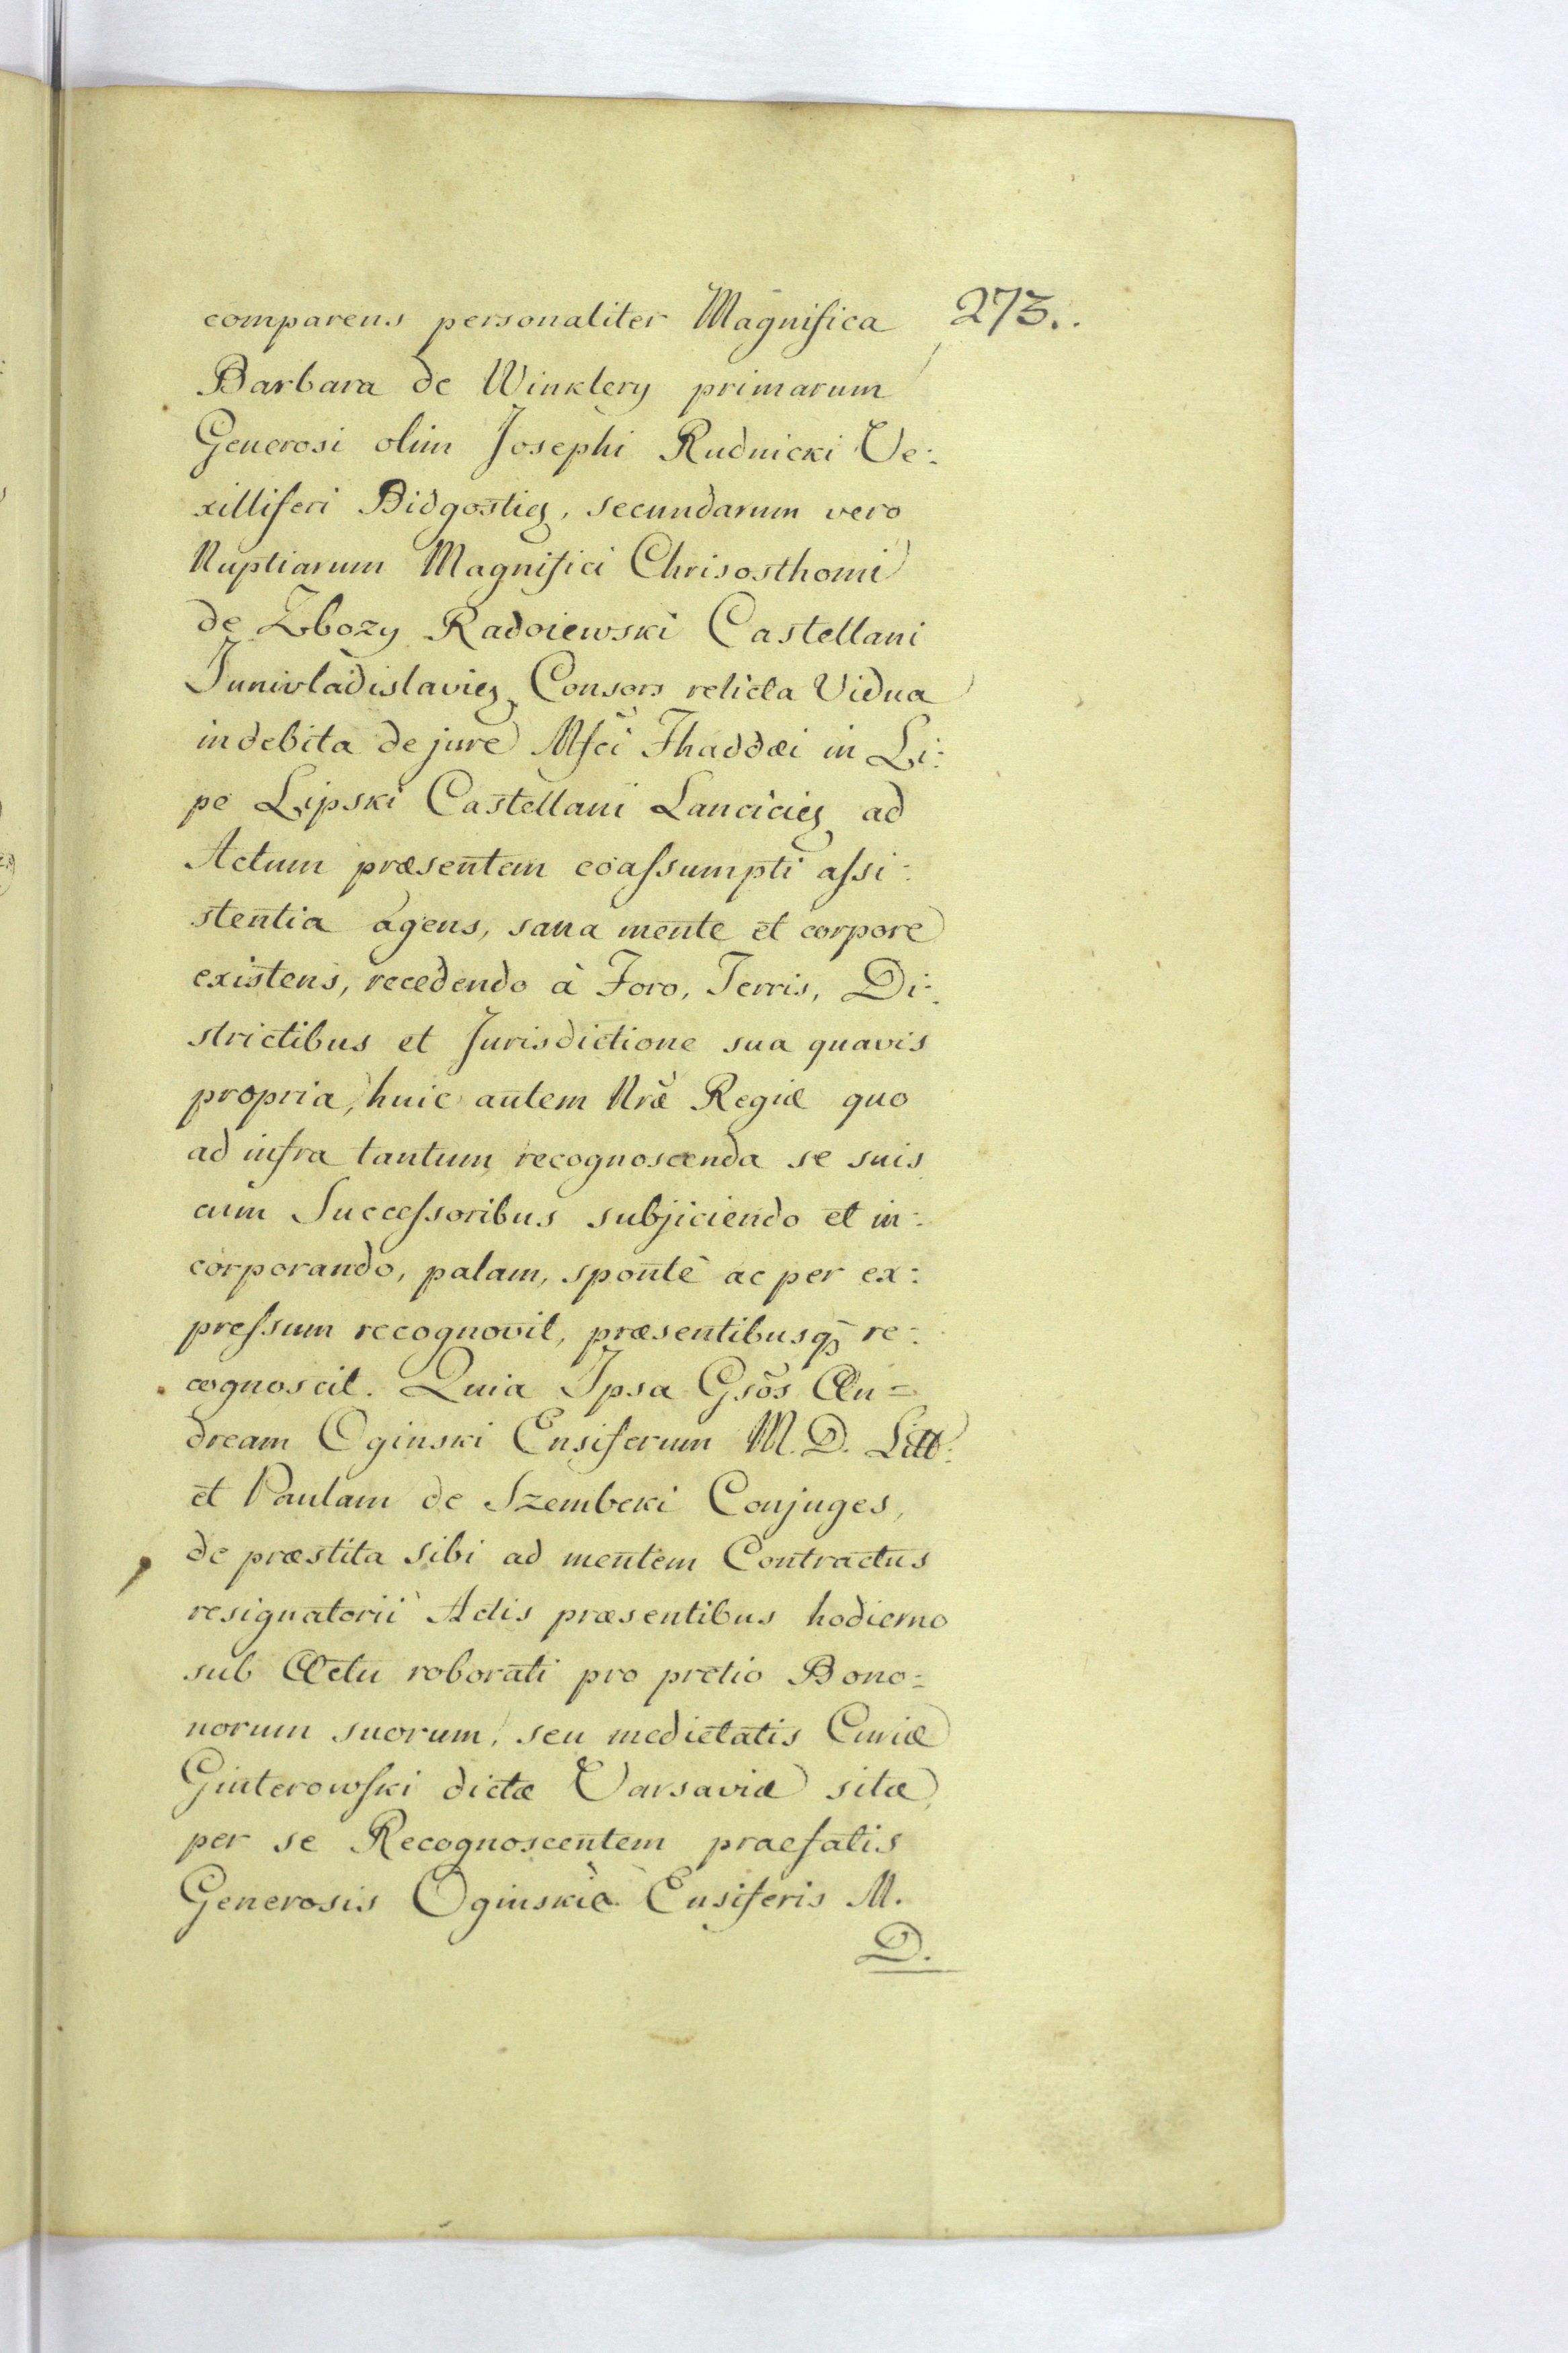 273..
comparens personaliter Magnifica
Barbara de Winklery primarum
Generosi olim Josephi Rudnicki Ve:
xilliferi Bidgostieȝ, secundarum vero
Nuptiarum Magnifici Chrisosthomi
de Zbozy Radoiewski Castellani
Junivladislavieȝ Consors relicta Vidua
indebita de jure Mfcĩ Thaddæi in Li:
pe Lipski Castellani Lancicieȝ ad
Actum præsentem coaſsumpti aſsi:
stentia agens, sana mente et corpore
existens, recedendo à Foro, Terris, Di:
strictibus et Jurisdictione sua quavis
propria, huic autem Nræ̃ Regiæ quo
ad infra tantum recognoscenda se suis
cum Succeſsoribus subjiciendo et in:
corporando, palam, spontè ac per ex:
preſsum recognovit, præsentibusqȝ re:
cognoscit. Quia Ipsa Gsõs An=
dream Oginski Ensiferum M. D. Litt:
et Paulam de Szembeki Conjuges,
de præstita sibi ad mentem Contractus
resignatorii Actis præsentibus hodierno
sub Actu roborati pro pretio Bono=
norum suorum, seu medietatis Curiæ
Ginterowſki dictæ Varsaviæ sitæ,
per se Recognoscentem praefatis
Generosis Oginskie Ensiferis M.
D.